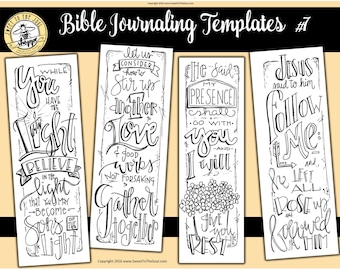 Bible Journaling Templates #7
SWEET TO THE SOUL
Shoppe
WHILE
You
HAVE the
Light
BELIEVE
in the
light
that YOU MAY
BECOME
Sons of
light
let us
CONSIDER
how to
Stir up
one
another
Love
&
good
works
NOT FORSAKING to
Gather
together
He Said
MY
PRESENCE
shall
GO WITH
you
AND
I will
give you
REST
Jesus
said to him,
Follow
Me:
and
he LEFT
ALL
ROSE up
and
followed
HIM
Copyright 2016 www.SweetToTheSoul.com